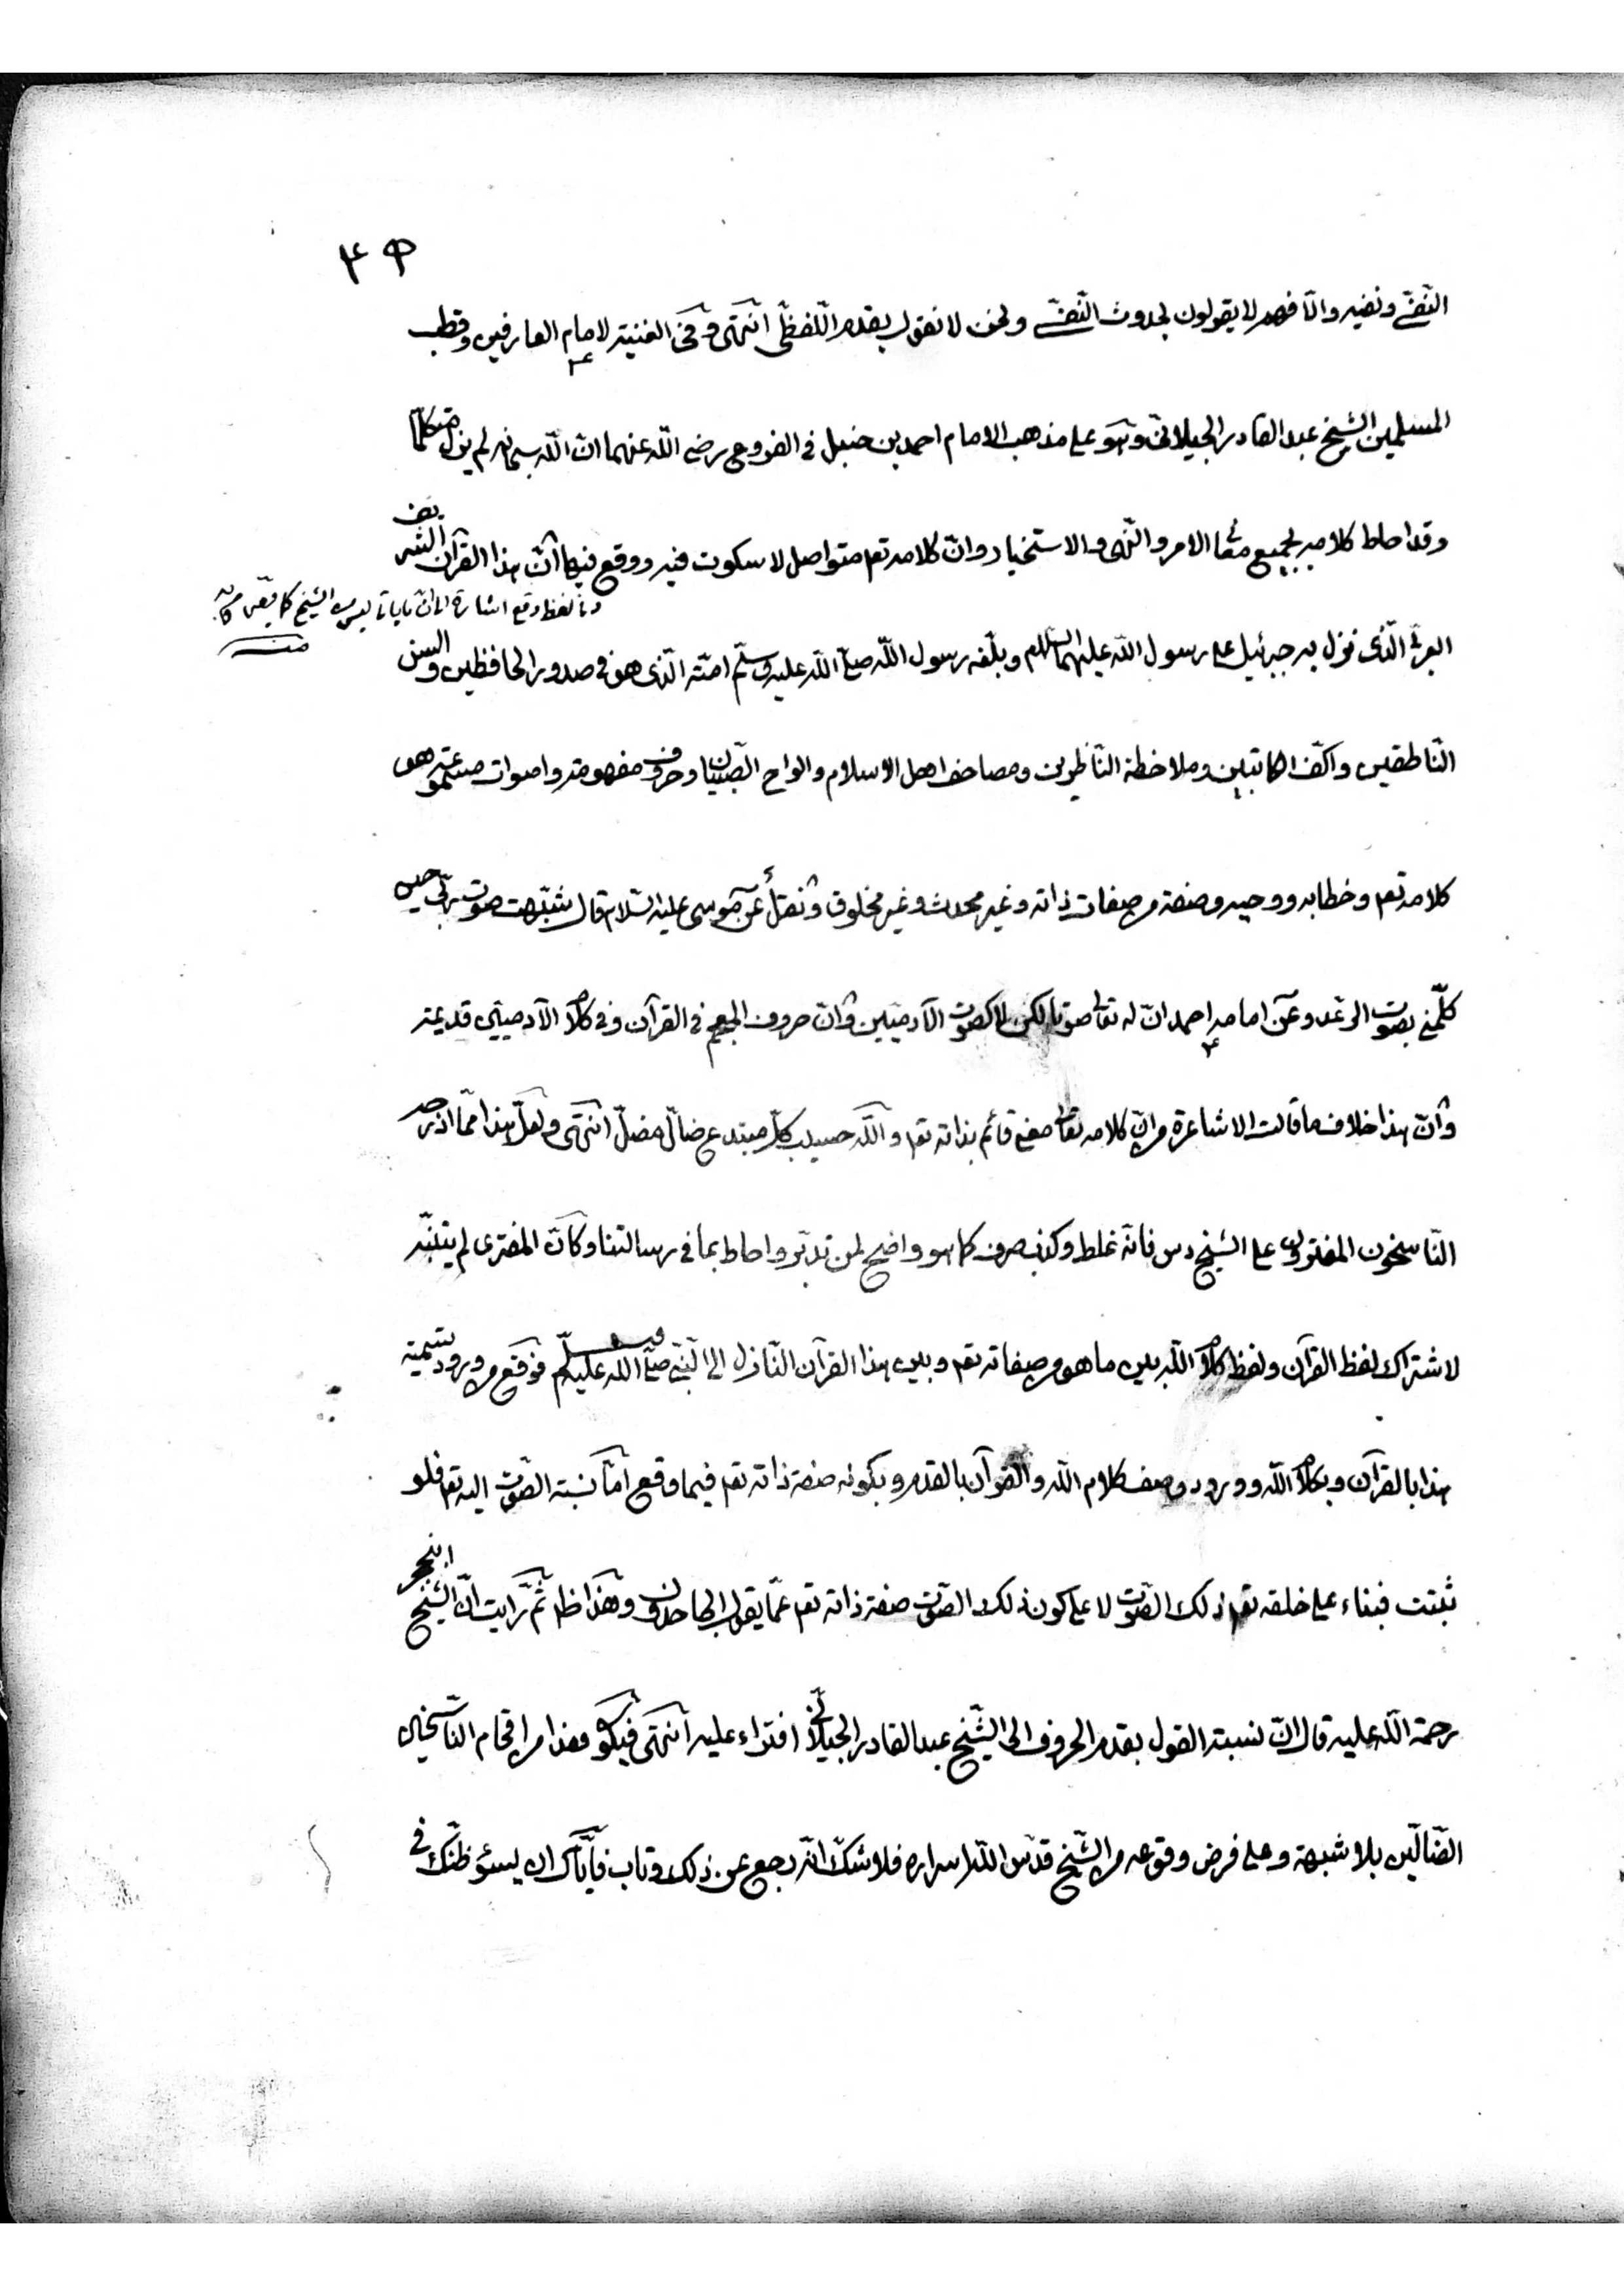 ٤٩
النّفسي ونفيه والّا فهم لا يقولون بحدوث النّفسي ونحن لا نقول بقدم اللّفظي انتهى وفي الغنية لامام العارفين وقطب
المسلمين الشيخ عبد القادر الجيلاني وهو على مذهب الامام احمد بن حنبل في الفروع رضى اللّه عنهما انّ اللّه سبحانه لم يزل متكلّما
وقد احاط كلامه بجميع معاني الامر والنّهي والاستخبار وانّ كلامه تعم متواصل لا سكوت فيه ووقع فيها انّ هذا القرآن الشريف
وفي لفظ وقع اشارة الى انّ ليس من الشيخ كما
منه
العربي الّذي نزل به جبرئيل على رسول اللّه عليهما السّلام وبلّغه رسول اللّه صلّى اللّه عليه وسلّم امّته الّذي هو في صدور الحافظين والسن
النّاطقين واكفّ الكاتبين وملاحظة النّاظرين ومصاحف اهل الاسلام والواح الصّبيان وحروف مفهومة واصوات مسموعة هو
كلامه تعم وخطابه ووحيه وصفة من صفات ذاته وغير محدث وغير مخلوق ونقل عن موسى عليه السّلام قال شبّهت صوت ربّي حين
كلّمني بصوت الرّعد وعن امامه احمد انّ له تعالى صوتا لكن لا كصوت الآدميّين وانّ حروف المعجم في القرآن وفي كلام الآدميّين قديمة
وانّ هذا خلاف ما قالت الاشاعرة من انّ كلامه تعالى معنى قائم بذاته تعم واللّه حسيب كلّ مبتدع ضالّ مضلّ انتهى ولعلّ هذا ممّا ادرجه
النّاسخون المفترون على الشيخ دس فانّه غلط وكذب صرف كما هو واضح لمن تدبّر واحاط بما في رسالتنا وكانّ المفترى لم يتنبّه
لاشتراك لفظ القرآن ولفظ كلام اللّه بين ما هو من صفاته تعم وبين هذا القرآن النّازل الى النّبي صلّى اللّه عليه وسلّم فوقع من ورود تسمية
هذا بالقرآن وبكلام اللّه وورود وصف كلام اللّه والقرآن بالقدم وبكونه صفة ذاته تعم فيما وقع امّا نسبة الصّوت اليه تعم فلو
ثبتت فبناء على خلقه تعم ذلك الصّوت لا على كون ذلك الصّوت صفة ذاته تعم عمّا يقول الجاحدون وهذا ظاهر ثمّ رايت انّ الشيخ ابن حجر
رحمة اللّه عليه قال انّ نسبة القول بقدم الحروف الى الشّيخ عبد القادر الجيلاني افتراء عليه انتهى فيكون هذا من اقحام النّاسخين
الضّالّين بلا شبهة وعلى فرض وقوعه من الشّيخ قدّس اللّه اسراره فلا شكّ انّه رجع عن ذلك وتاب فايّاك ان يسوء ظنّك في